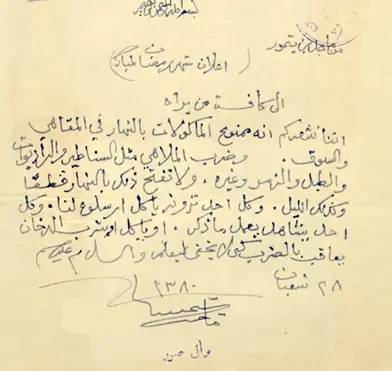 بسم الله الرحمن الرحيم
من اجل بن تيمور
( اعلان شهر رمضان المبارك )
الى كافة من يراه
اننا نشعركم انه ممنوع الماكولات بالنهار في المقاهي
والسوق . وضرب الملاهي مثل السناطير والراديوات
والطبل والزمر وغيره . ولا تفتح ذلك بالنهار قطعًا
وكذلك الليل . وكل احد ترونه ياكل ارسلوه لنا . وكل
احد يتشاهل بعمل ما ذكر . او ياكل او يشرب الدخان
يعاقب بالضرب لكي لا يخفى ليعلم والسلام عليكم
٢٨ شعبان ١٣٨٠
والي صور